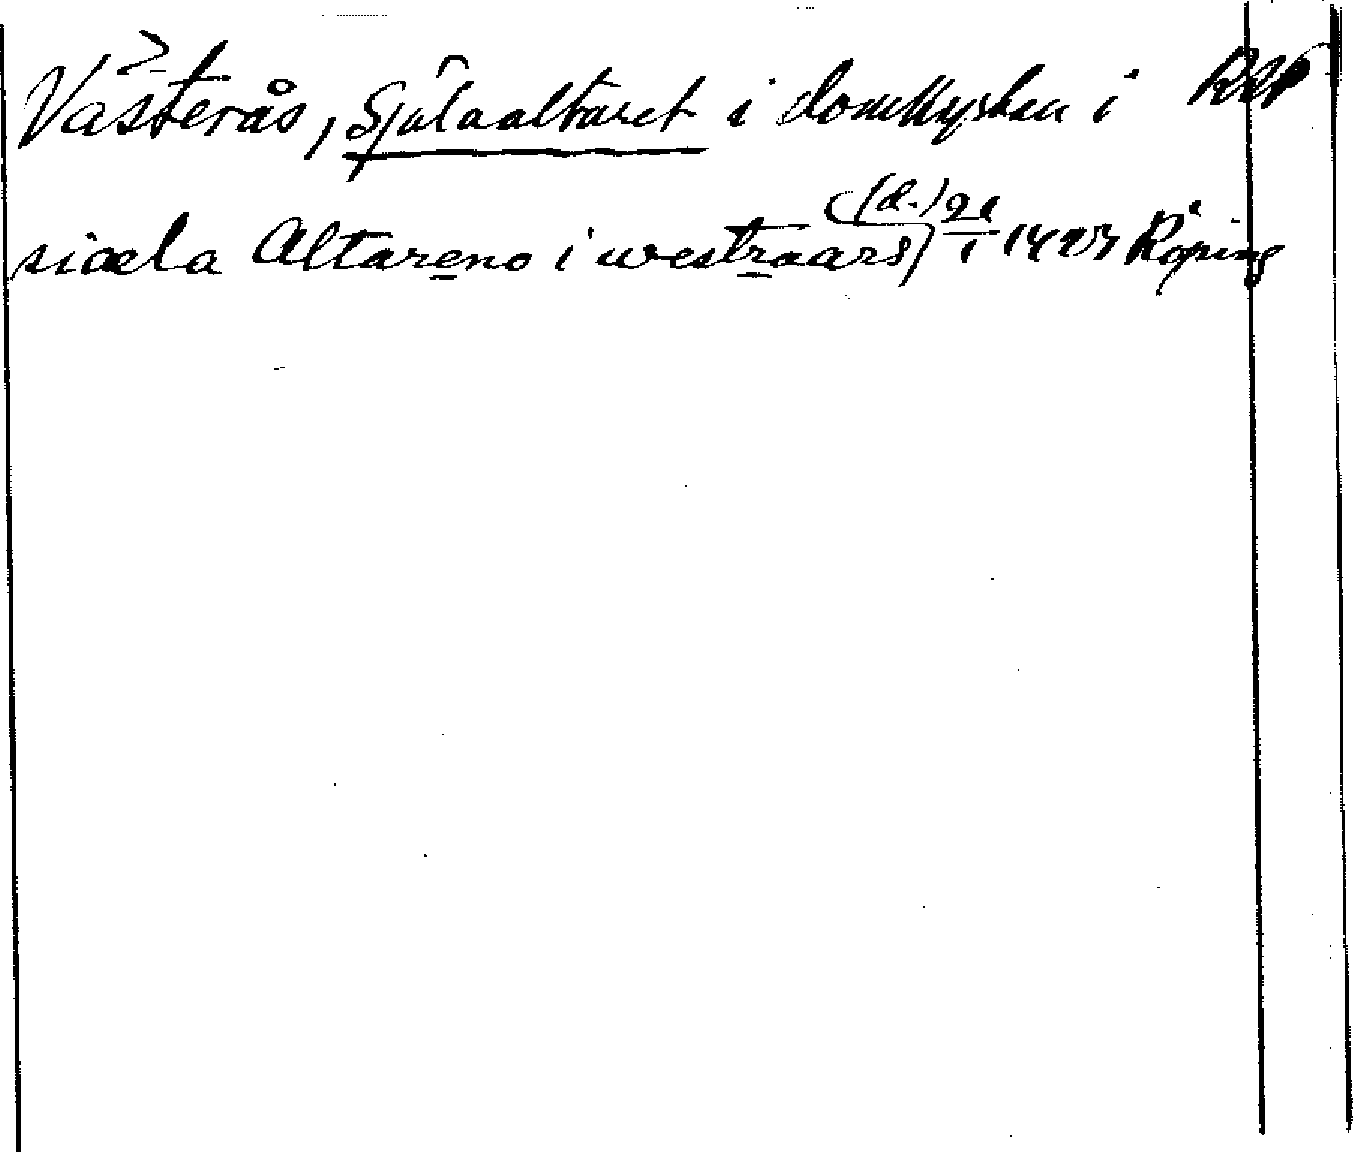 Västerås, Själaaltaret i domkyrkan i RAP
siaela Altareno i westraars (d.) 21/1 1423 Köping